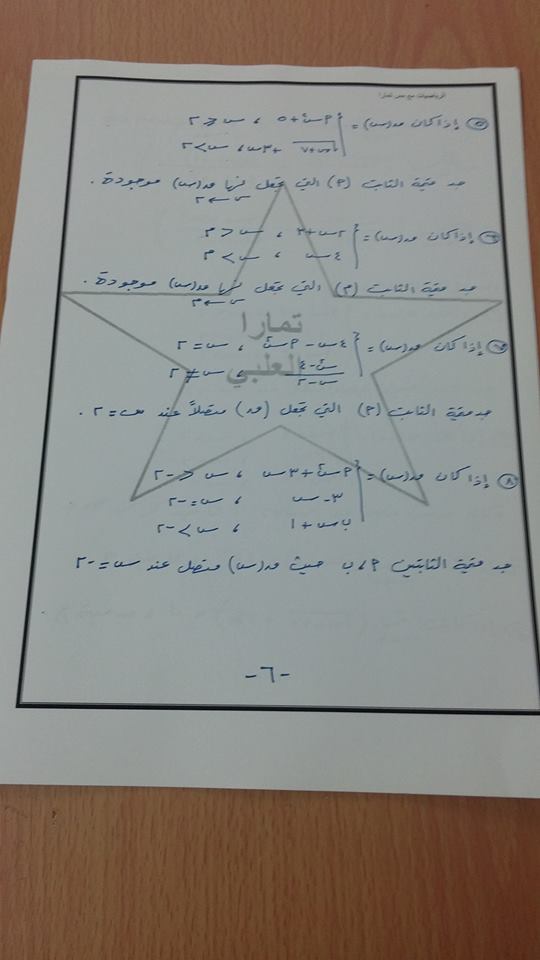 الرياضيات مع مس تمارا
٥ إذا كان ق(س) = { ٢س + ٥ ، س ≥ ٢
+ ٣س ، س < ٢
جد قيمة الثابت (٢) التي تجعل نهاق(س) موجودة .
س ← ٢
٦ إذا كان ق(س) = { ٢س + ٣ ، س > ٢
٤س ، س < ٢
جد قيمة الثابت (٢) التي تجعل نهاق(س) موجودة .
تمارا
العلبي
٧ إذا كان ق(س) = { ٤س - ٢س² ، س = ٢
س² - ٤ / س - ٢ ، س ≠ ٢
جد قيمة الثابت (٢) التي تجعل (ق) متصلاً عند س = ٢ .
٨ إذا كان ق(س) = { ٢س² + ٣س ، س > -٢
٣ - س ، س = -٢
ب س + ١ ، س < -٢
جد قيمة الثابتين ٢ ، ب حيث ق(س) متصل عند س = -٢
-٦-